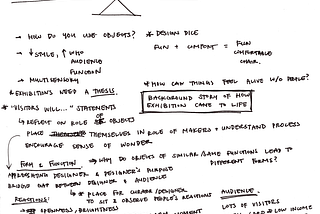 → HOW DO YOU USE OBJECTS?
* DESIGN DICE
→ ↓ STYLE, ↑ WHO
AUDIENCE
FUNCTION
FUN + COMFORT = FUN
COMFORTABLE
CHAIR.
→ MULTISENSORY
* EXHIBITIONS NEED A THESIS.
* HOW CAN THINGS FEEL ALIVE W/O PEOPLE?
* "VISITORS WILL..." STATEMENTS
BACKGROUND STORY OF HOW
EXHIBITION CAME TO LIFE
↳ REFLECT ON ROLE OF OBJECTS
PLACE THEMSELVES IN ROLE OF MAKERS + UNDERSTAND PROCESS
ENCOURAGE SENSE OF WONDER
FORM & FUNCTION → WHY DO OBJECTS OF SIMILAR/SAME FUNCTIONS LEAD TO
DIFFERENT FORMS?
APPRECIATING DESIGNER & DESIGNER'S PURPOSE
BRIDGE GAP BETWEEN DESIGNER & AUDIENCE
↳ * PLACE FOR CURATOR/DESIGNER
TO SIT & OBSERVE PEOPLE'S REACTIONS
AUDIENCE.
REACTIONS:
OPENNESS, BRIGHTNESS
LOTS OF VISITORS
LOW INCOME